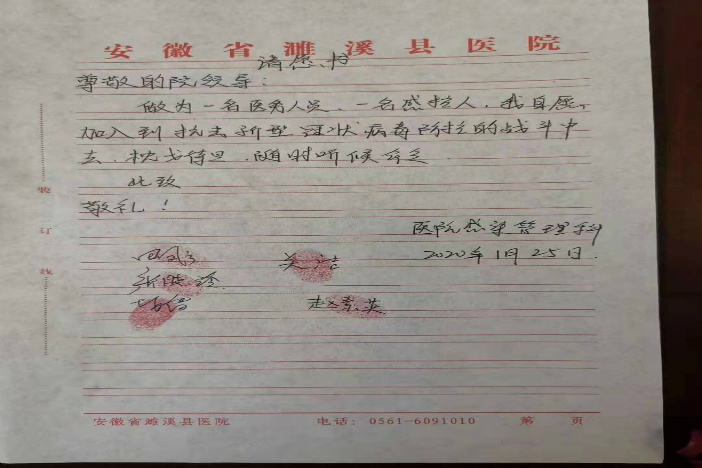 安徽省濉溪县医院
请愿书
尊敬的院领导：
做为一名医务人员、一名感控人，我自愿
加入到抗击新型冠状病毒防控的战斗中
去，枕戈待旦，随时听候命令．
此致
敬礼！
医院感染管理科
2020年1月25日．
赵素英
装
订
线
安徽省濉溪县医院 电话：0561-6091010 第 页